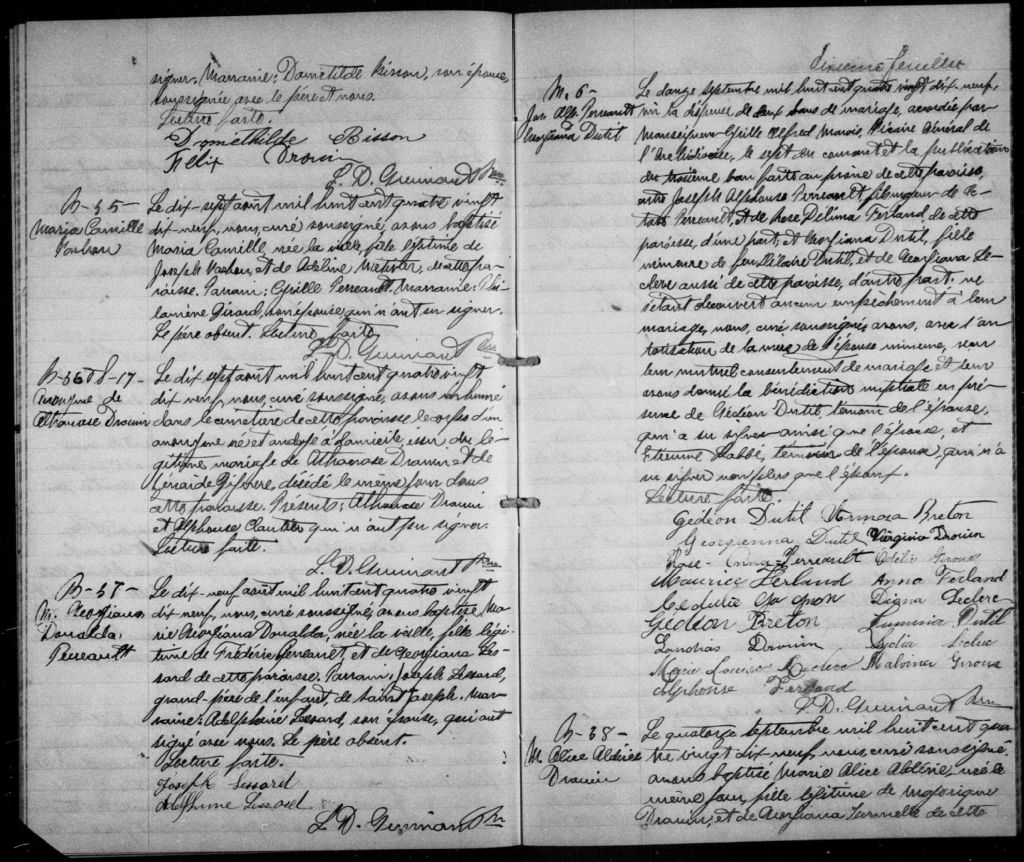 signer. Marraine: Dometilde Bisson, son épouse,
soussignée avec le père et nous.
Lecture faite.
Domèthilde Bisson
Félix Drouin
L. D. Guimont Ptre
B-35
Maria Camille
Vachon
Le dix-sept août mil huit cent quatre vingt
dix-neuf, nous, curé soussigné, avons baptisé
Maria Camille née la veille, fille légitime de
Joseph Vachon, et de Adeline de cette pa-
roisse. Parrain: Cyrille Perreault. Marraine: Phi-
lomène Girard, son épouse, qui n'ont su signer.
Le père absent. Lecture faite.
L. D. Guimont Ptre
B-36 & S-17-
Anonyme de
Athanase Drouin
Le dix sept août mil huit cent quatre vingt
dix neuf, nous, curé soussigné, avons inhumé
dans le cimetière de cette paroisse le corps d'un
anonyme né et ondoyé à domicile, issu du lé-
gitime mariage de Athanase Drouin et de
décédé le même jour dans
cette paroisse. Présents: Athanase Drouin
et Alphonse Cloutier qui n'ont pu signer.
Lecture faite.
L. D. Guimont Ptre
B-37-
M. Georgiana
Donalda
Perreault
Le dix-neuf août mil huit cent quatre vingt
dix-neuf, nous, curé soussigné, avons baptisé Ma-
rie Georgiana Donalda, née la veille, fille légi-
time de Frédéric Perreault et de Georgiana Les-
sard de cette paroisse. Parrain: Joseph Lessard,
grand-père de l'enfant, de Saint Joseph. Mar-
raine: Adelphine Lessard, son épouse, qui ont
signé avec nous. Le père absent.
Lecture faite.
Joseph Lessard
Adelphine Lessard
L. D. Guimont Ptre
feuillet
M. 6-
Jos. Alph. Perreault
Georgiana Dutil
Le douze septembre mil huit cent quatre vingt dix-neuf,
vu la dispense de deux bans de mariage, accordée par
Monseigneur Cyrille Alfred Marois, Vicaire Général de
l'Archidiocèse, le sept du courant et la publication
du troisième ban faite au prône de cette paroisse,
entre Joseph Alphonse Perreault, fils majeur de
Perreault, et de Rose Délima Ferland de cette
paroisse, d'une part; et Georgiana Dutil, fille
mineure de feu Hilaire Dutil, et de Georgiana Le-
clerc aussi de cette paroisse, d'autre part; ne
s'étant découvert aucun empêchement à leur
mariage, nous, curé soussigné, avons, avec l'au-
torisation de la mère de l'épouse mineure, reçu
leur mutuel consentement de mariage et leur
avons donné la bénédiction nuptiale en pré-
sence de Gédéon Dutil, témoin de l'épouse,
qui a su signer ainsi que l'épouse, et
Etienne Labbé, témoin de l'époux qui n'a
su signer non plus que l'époux.
Lecture faite.
Gédéon Dutil Hermosa Breton
Georgianna Dutil Virginie Drouin
Rose-Anna Perreault Adélia Giroux
Maurice Ferland Anna Ferland
Cédulie Gagnon Diana Leclerc
Gédéon Breton Euphémia Dutil
Drouin Lydia Leclerc
Marie Louise Leclerc Malvina Giroux
Alphonse Ferland
L. D. Guimont Ptre
B-38-
M. Alice Aldérie
Drouin
Le quatorze septembre mil huit cent qua-
tre vingt dix-neuf, nous, curé soussigné,
avons baptisé Marie Alice Aldérie, née le
même jour, fille légitime de Majorique
Drouin, et de Georgiana de cette